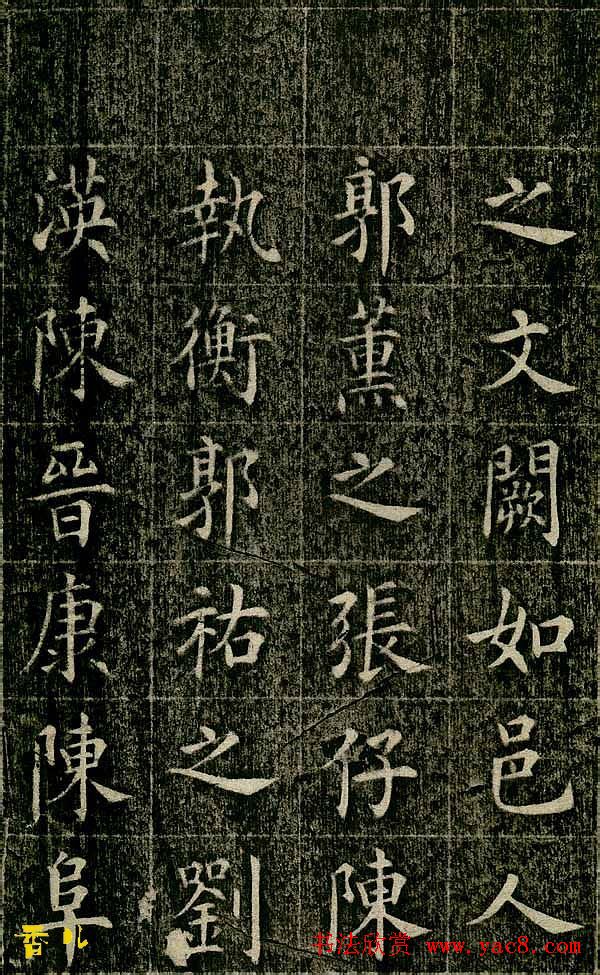 之文闕如邑人
郭薰之張仔陳
執衡郭祐之劉
渶陳晉康陳阜
香儿
书法欣赏 www.yac8.com